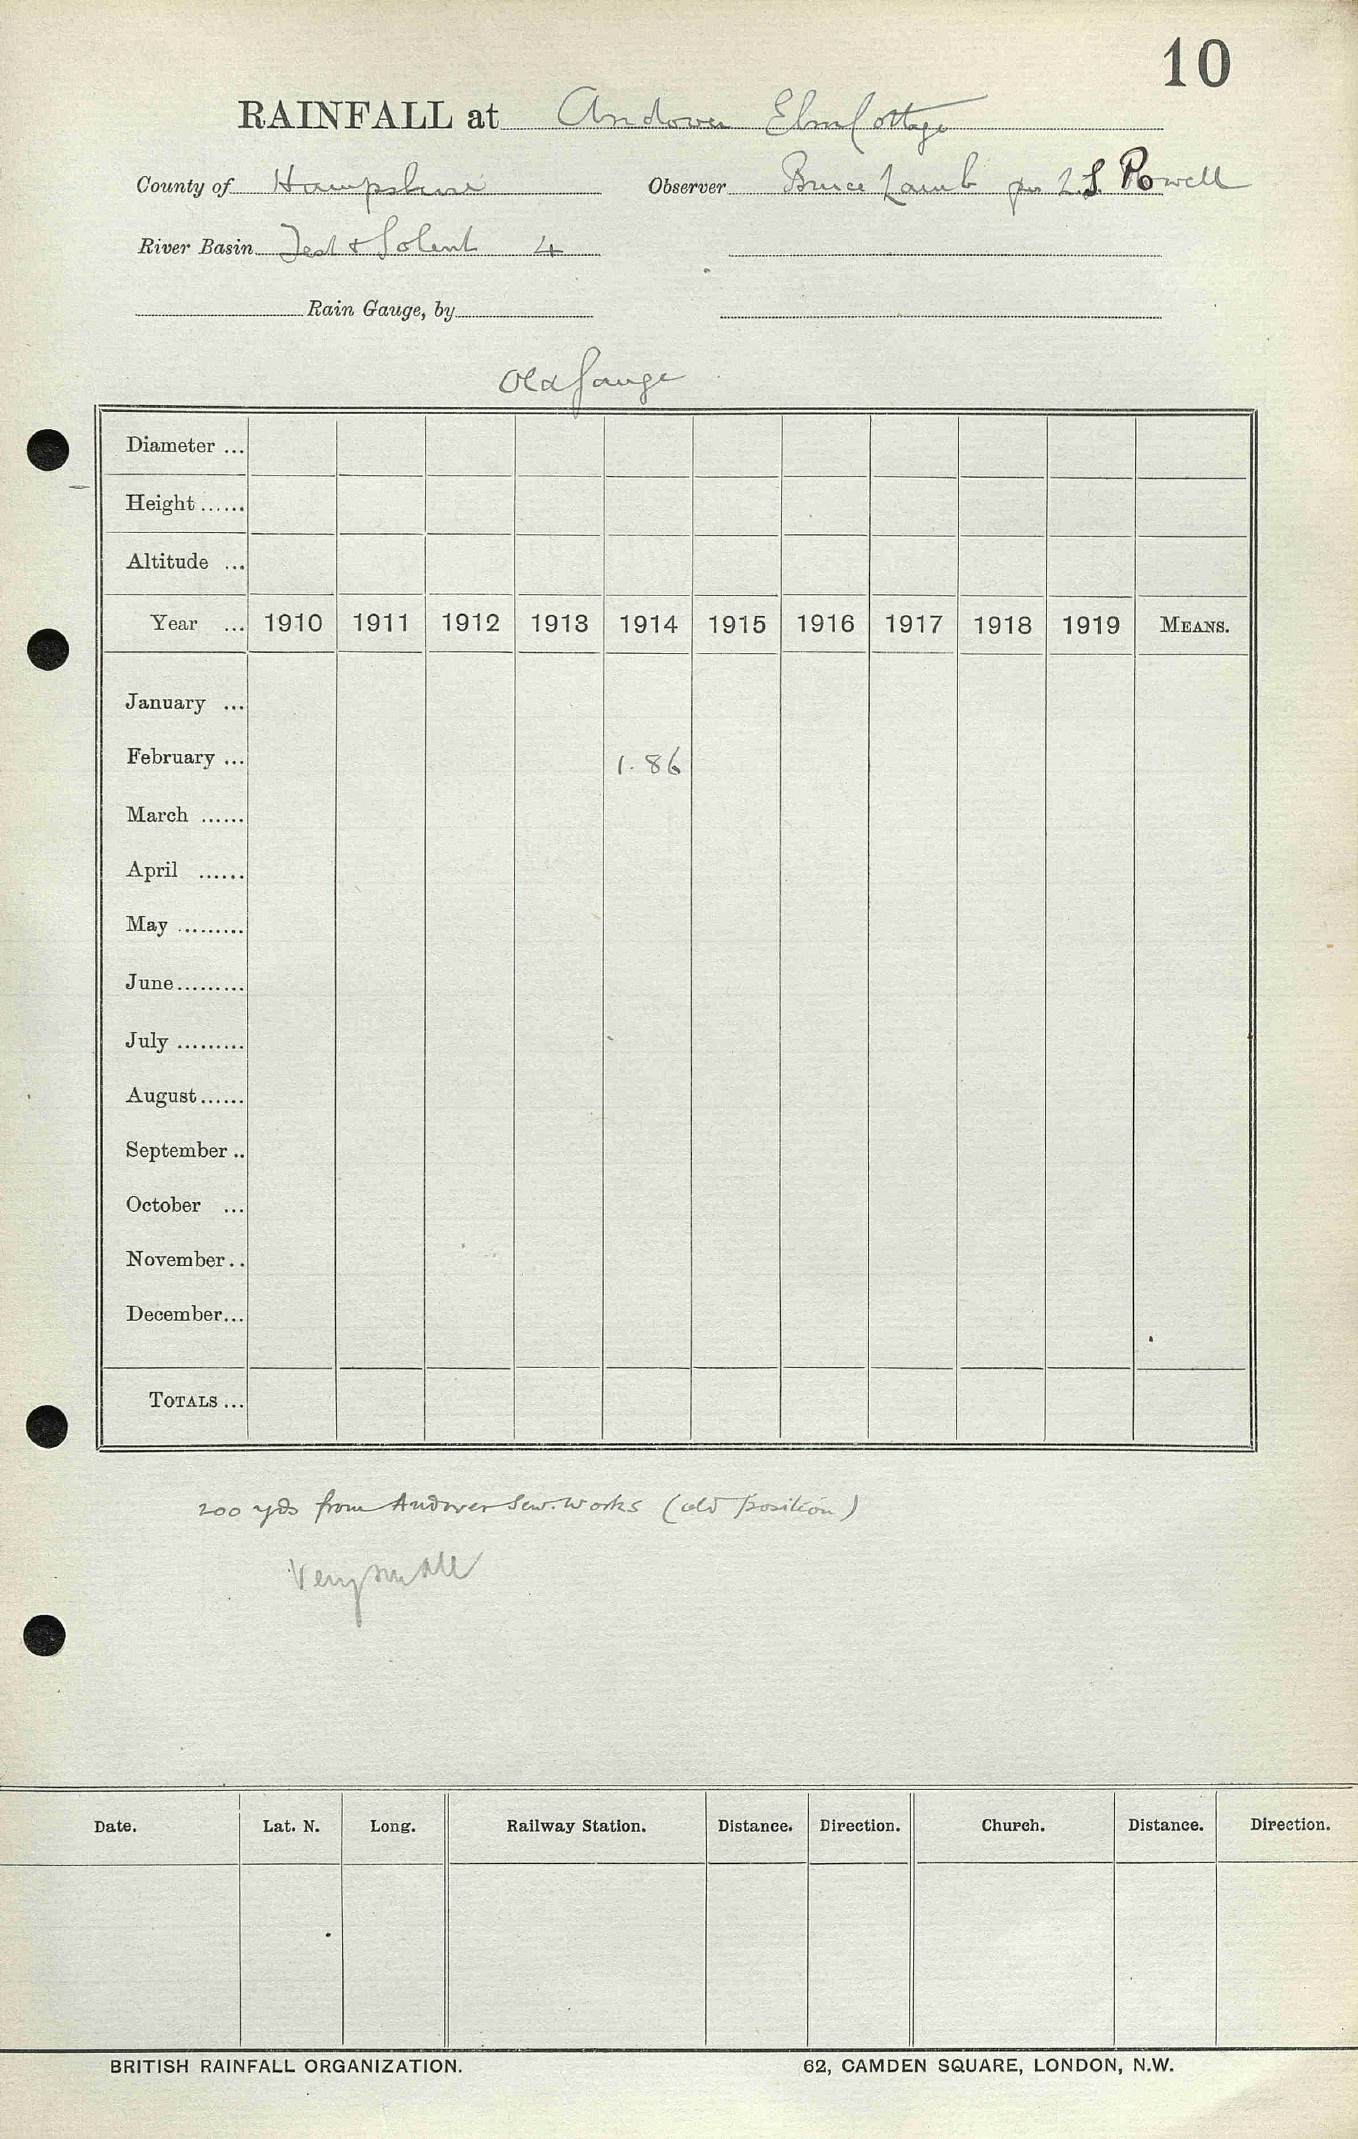 10
RAINFALL at Andover Elm Cottage
County of Hampshire Observer Bruce Lamb per L.S. Powell
River Basin Test & Solent 4
Rain Gauge, by
Old Gauge
Diameter ...
Height ......
Altitude ...
Year ... 1910 1911 1912 1913 1914 1915 1916 1917 1918 1919 MEANS.
January ...
February ... 1.86
March ......
April ......
May .........
June.........
July .........
August......
September ..
October ...
November..
December...
TOTALS ...
200 yds from Andover Sew. Works (old position)
Very small
Date. Lat. N. Long. Railway Station. Distance. Direction. Church. Distance. Direction.
BRITISH RAINFALL ORGANIZATION. 62, CAMDEN SQUARE, LONDON, N.W.